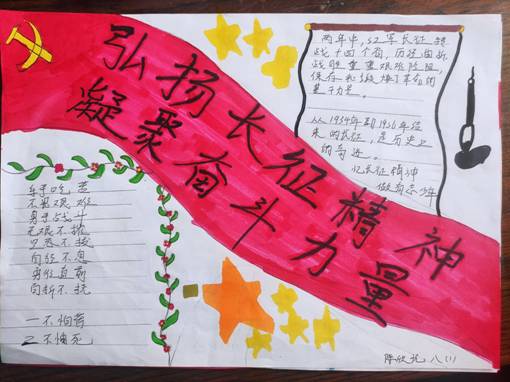 弘扬长征精神
凝聚奋斗力量
两年中,红军长征转
战十四个省,历经曲折
战胜重重艰难险阻,
保存和锻炼了革命的
基干力量。
从1934年到1936年结
束的长征,是历史上
的奇迹。
忆长征精神
做有志少年
不畏艰难
勇于战斗
无坚不摧
勇往直前
百折不挠
一不怕苦
二不怕死
八(1)